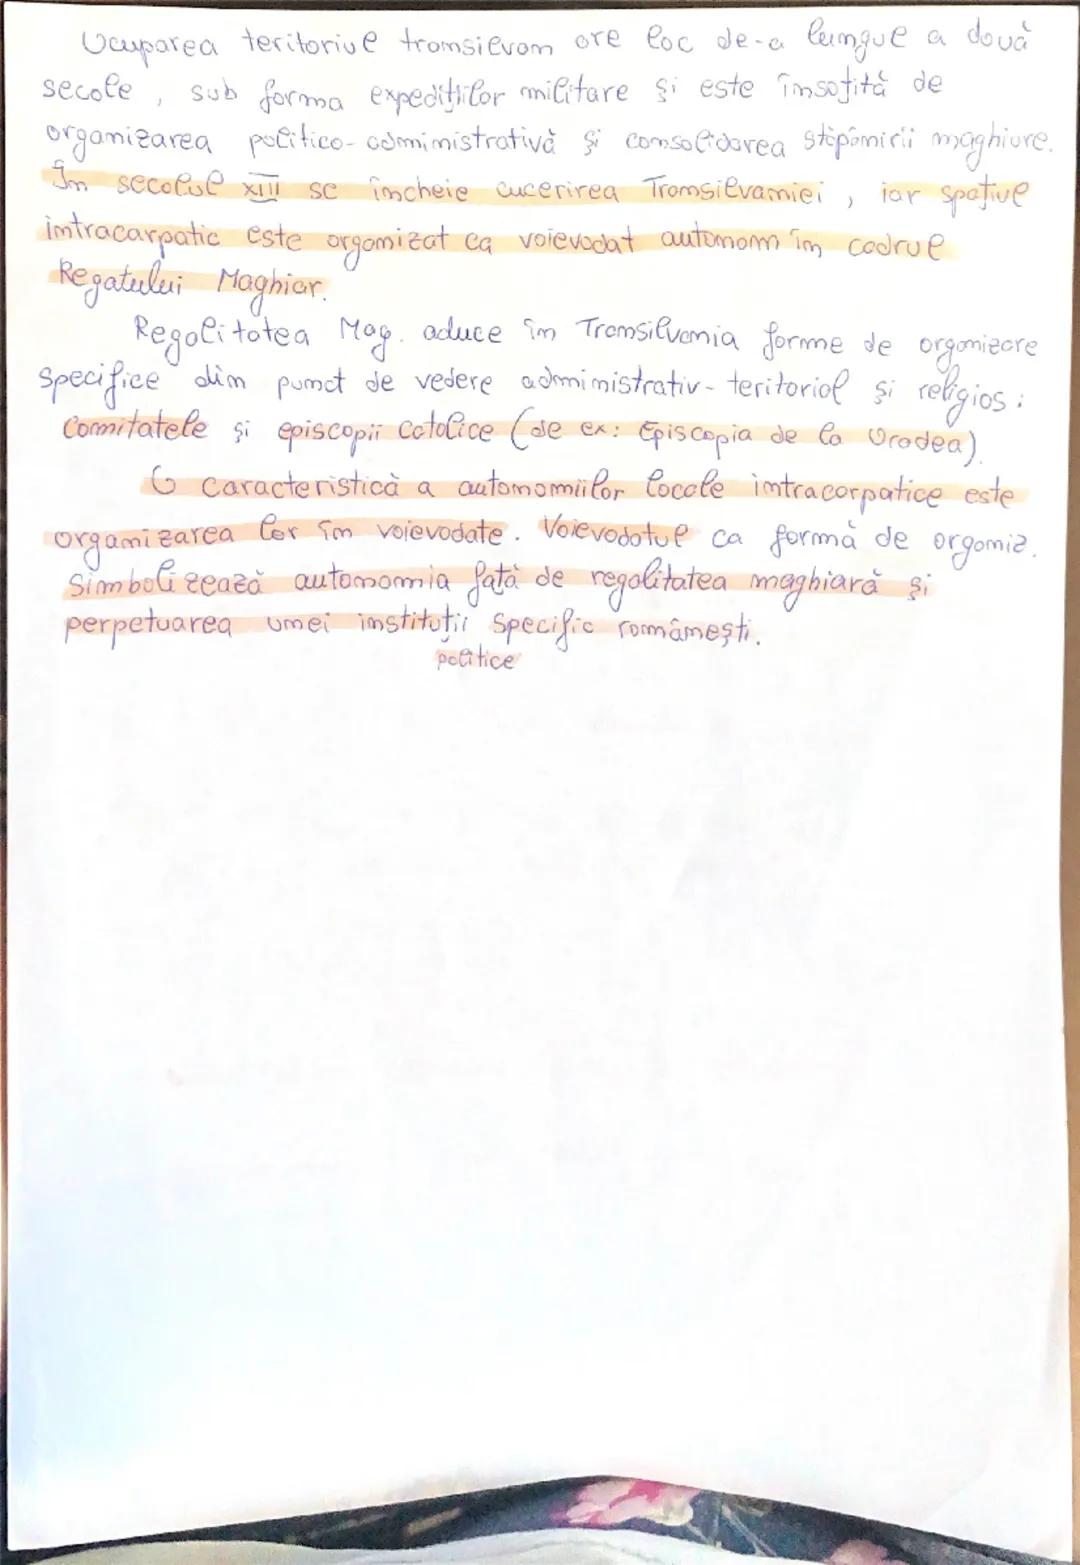 Ocuparea teritoriul transilvan are loc de-a lungul a două
secole, sub forma expedițiilor militare și este însoțită de
organizarea politico-administrativă și consolidarea stăpânirii maghiare.
În secolul XIII se încheie cucerirea Transilvaniei, iar spațiul
intracarpatic este organizat ca voievodat autonom în cadrul
Regatului Maghiar.
Regalitatea Mag. aduce în Transilvania forme de organizare
specifice din punct de vedere administrativ-teritorial și religios:
Comitatele și episcopii catolice (de ex: Episcopia de la Oradea).
O caracteristică a autonomiilor locale intracarpatice este
organizarea lor în voievodate. Voievodatul ca formă de organiz.
simbolizează autonomia față de regalitatea maghiară și
perpetuarea unei instituții specific românești.
politice